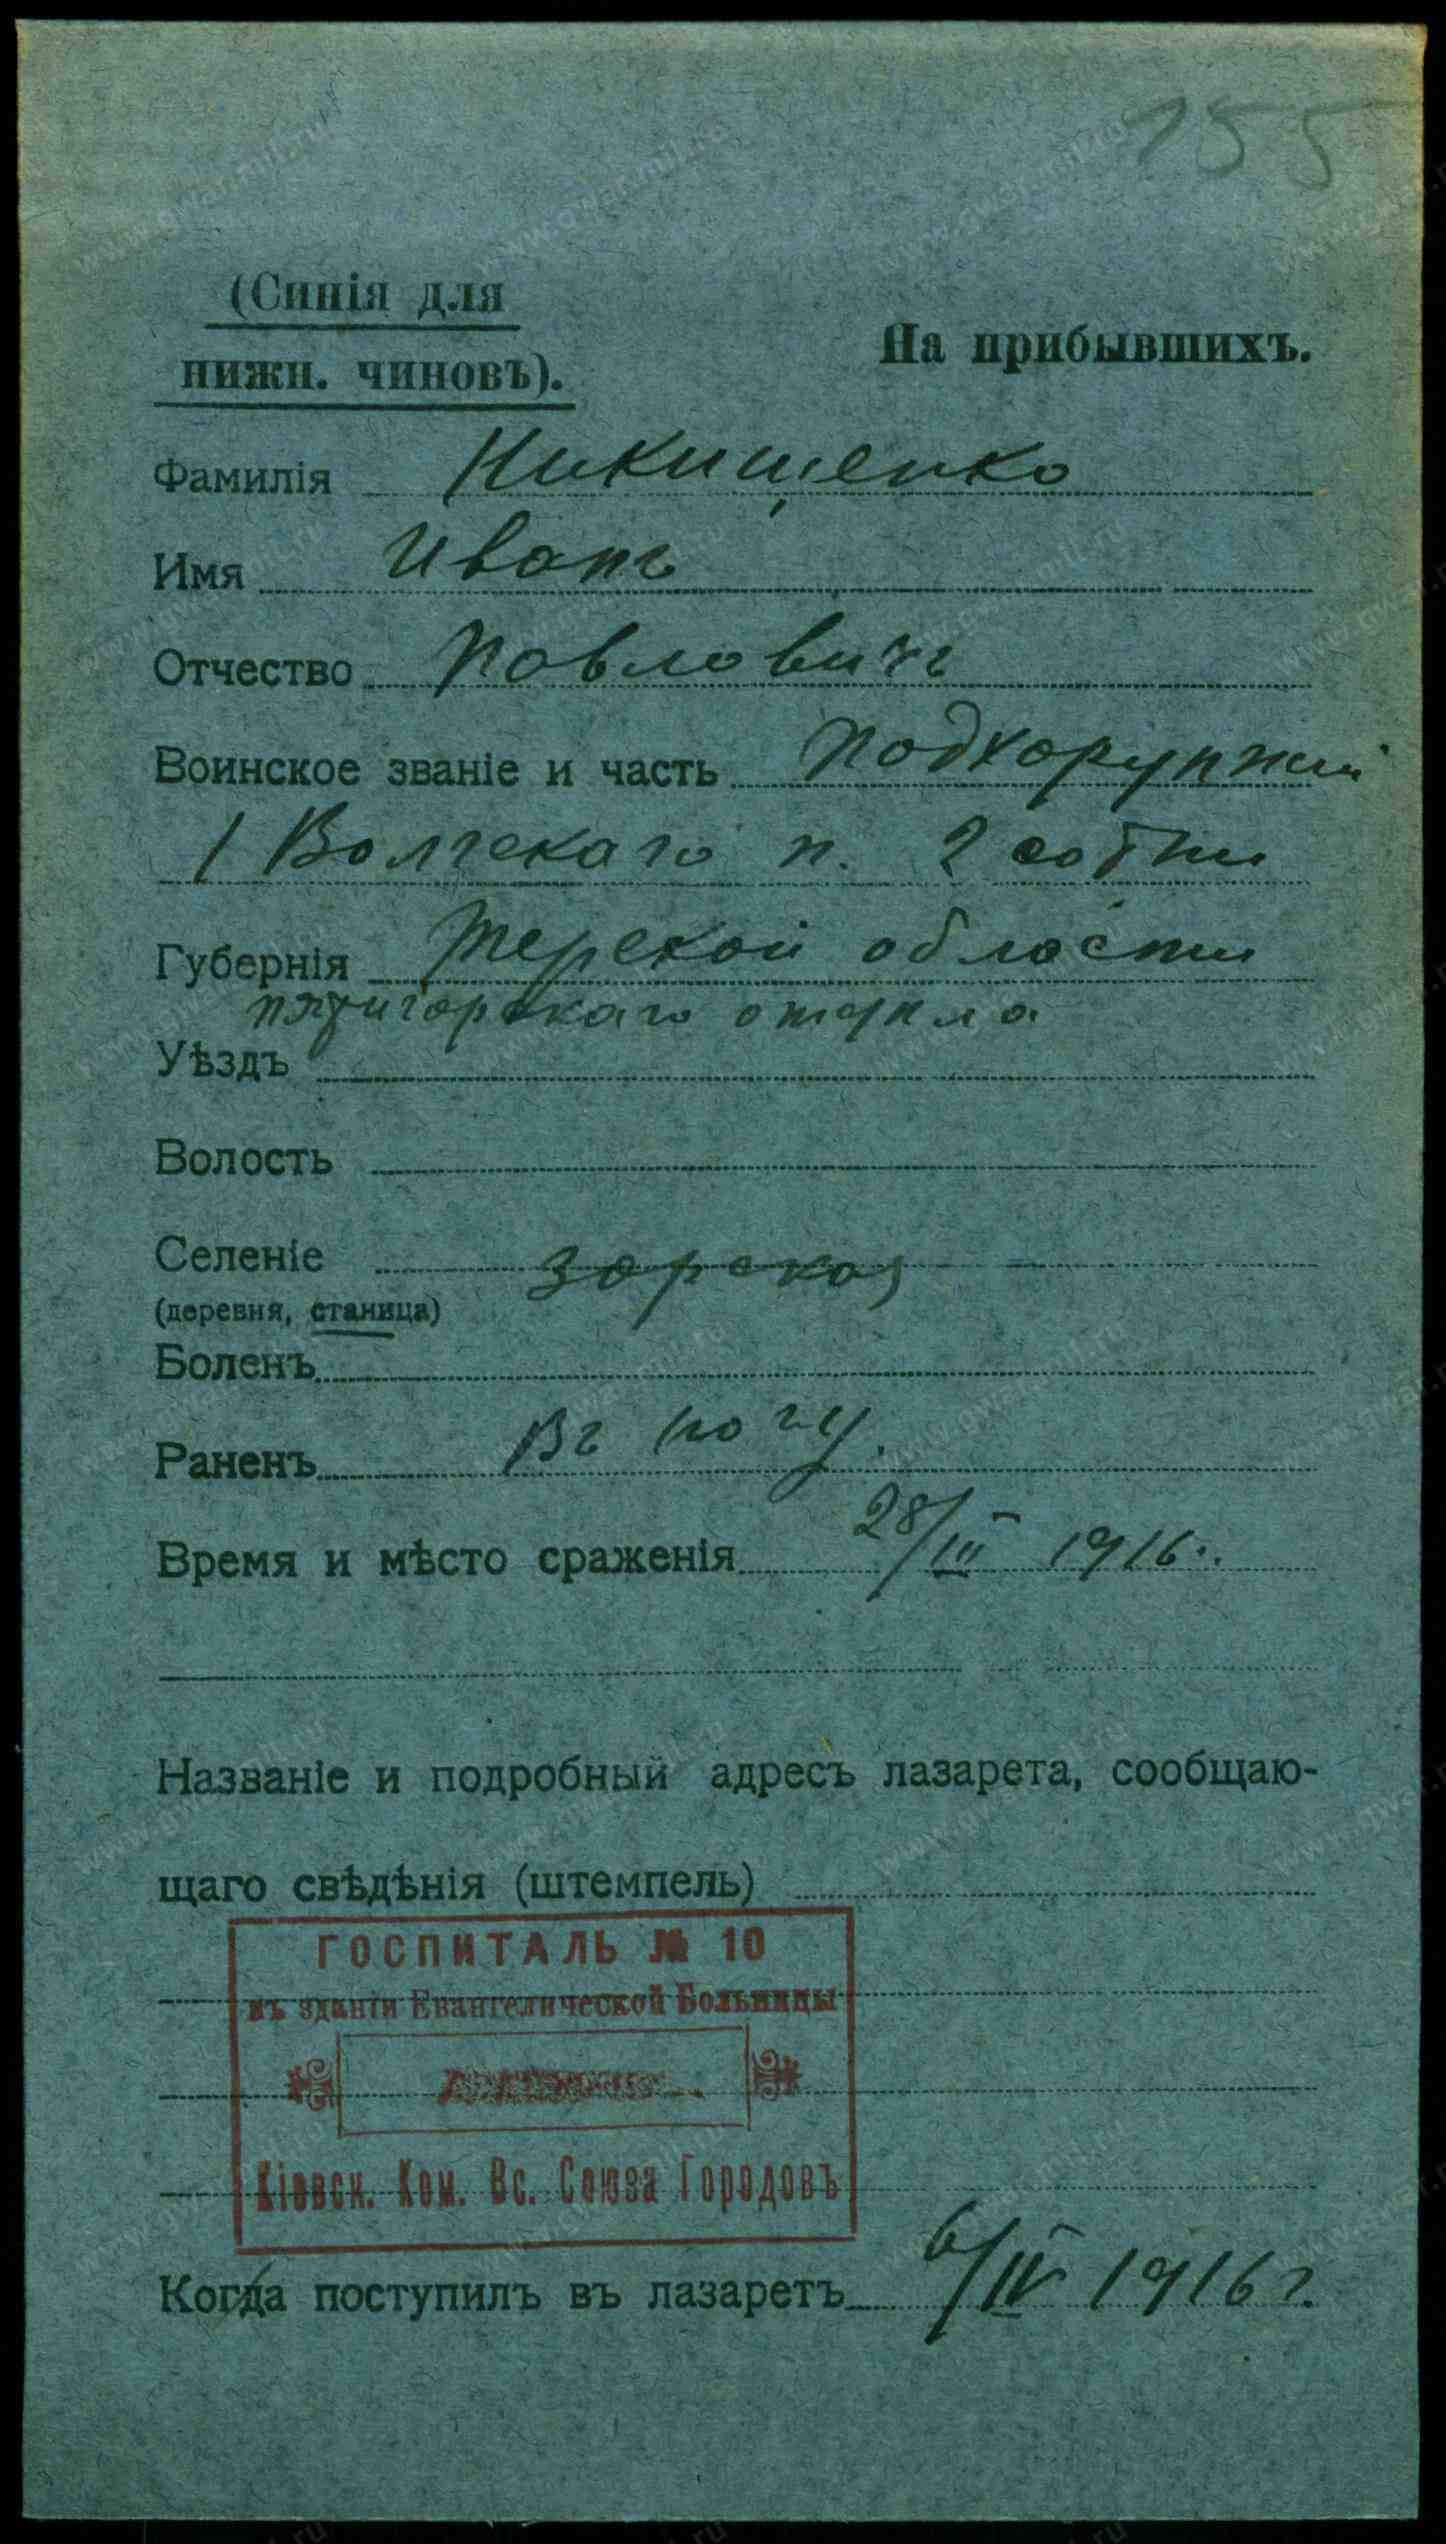 155
(Синія для
нижн. чиновъ).
На прибывшихъ.
Фамилія Никищенко
Имя Иванъ
Отчество Павловичъ
Воинское званіе и часть подхорунжій
1 Волгскаго п. 2 сотни
Губернія Терской области
пятигорскаго отдѣла
Уѣздъ
Волость
Селеніе зорская
(деревня, станица)
Боленъ
Раненъ Въ ногу.
Время и мѣсто сраженія 28/III 1916г.
Названіе и подробный адресъ лазарета, сообщаю-
щаго свѣдѣнія (штемпель)
ГОСПИТАЛЬ № 10
въ зданіи Евангелической Больницы
Кіевск. Ком. Вс. Союза Городовъ
Когда поступилъ въ лазаретъ 6/IV 1916 г.